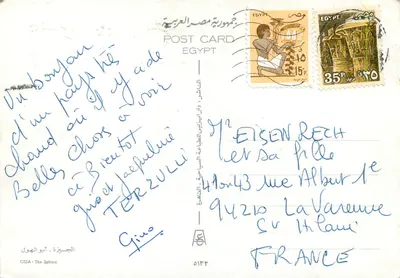 جمهورية مصر العربية
POST CARD
EGYPT
EGYPT مصر
١٥
15
35P ٣٥
Un bonjour
d'un pays très
chaud où il y a de
Belles choses à voir
à Bientot
gino et jacqueline
TERZULLI
Gino
Mr EISENRECH
et sa fille
41 ou 43 rue Albert 1e
94210 La Varenne
St Hilaire
FRANCE
الجيزة . أبو الهول
GIZA - The Sphinx
٥١٣٢